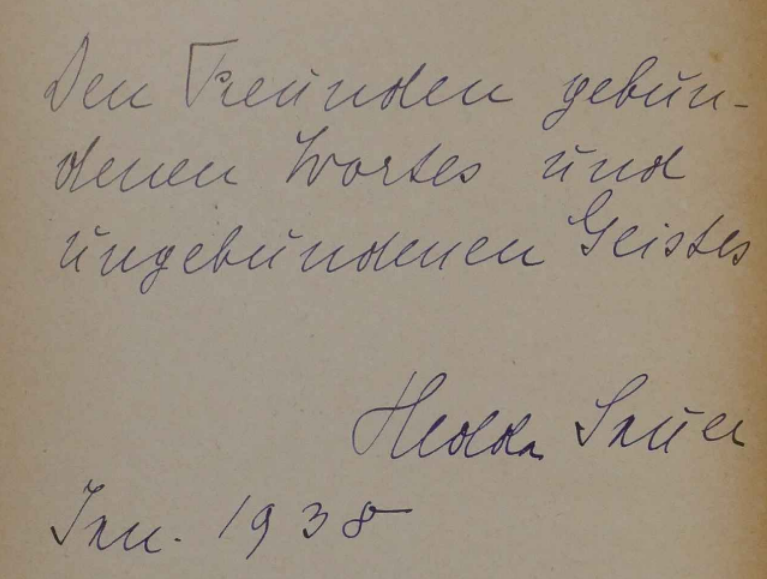 Den Freunden gebun-
denen Wortes und
ungebundenen Geistes
Hedda Sauer
Jan. 1938